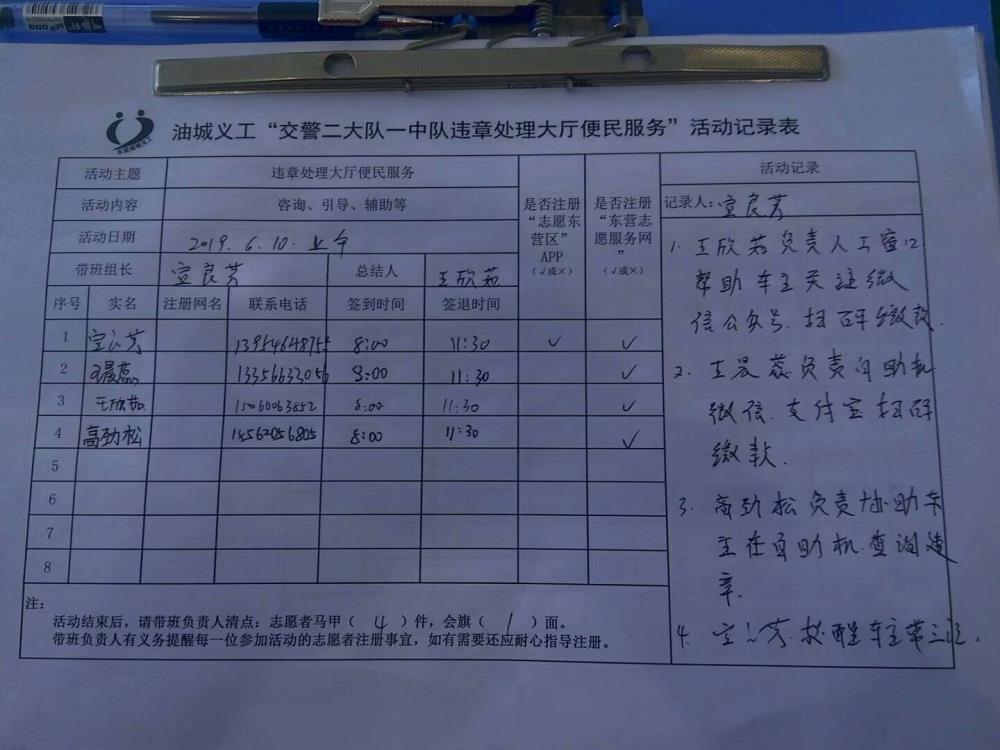 油城义工“交警二大队一中队违章处理大厅便民服务”活动记录表
活动主题 违章处理大厅便民服务
活动内容 咨询、引导、辅助等
活动日期 2019.6.10.上午
带班组长 宣良芳 总结人 王欣茹
是否注册“志愿东营区”APP(√或×)
是否注册“东营志愿服务网”(√或×)
序号 实名 注册网名 联系电话 签到时间 签退时间
1 宣良芳 13954648755 8:00 11:30 ✓ ✓
2 王晨蕊 13356632056 8:00 11:30 ✓
3 王欣茹 8:00 11:30 ✓
4 高劲松 15562056805 8:00 11:30 ✓
5
6
7
8
注:
活动结束后，请带班负责人清点：志愿者马甲（ 4 ）件，会旗（ 1 ）面。
带班负责人有义务提醒每一位参加活动的志愿者注册事宜，如有需要还应耐心指导注册。
活动记录
记录人:宣良芳
1. 王欣茹负责人工窗口.
帮助车主关注微
信公众号.扫码缴款.
2. 王晨蕊负责自助机
微信.支付宝扫码
缴款.
3. 高劲松负责协助车
主在自助机.查询违
章.
4. 宣良芳.提醒车主带三证.